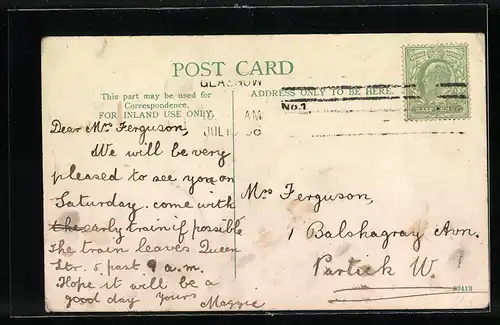 POST CARD
GLASGOW
This part may be used for
Correspondence.
FOR INLAND USE ONLY.
ADDRESS ONLY TO BE HERE.
No.1
AM
JUL
Dear Mrs Ferguson,
We will be very
pleased to see you on
Saturday. come with
the early train if possible
The train leaves Queen
Str. 5 past 9 a.m.
Hope it will be a
good day yours
Maggie
Mrs Ferguson,
1 Balshagray Avn.
Partick W.